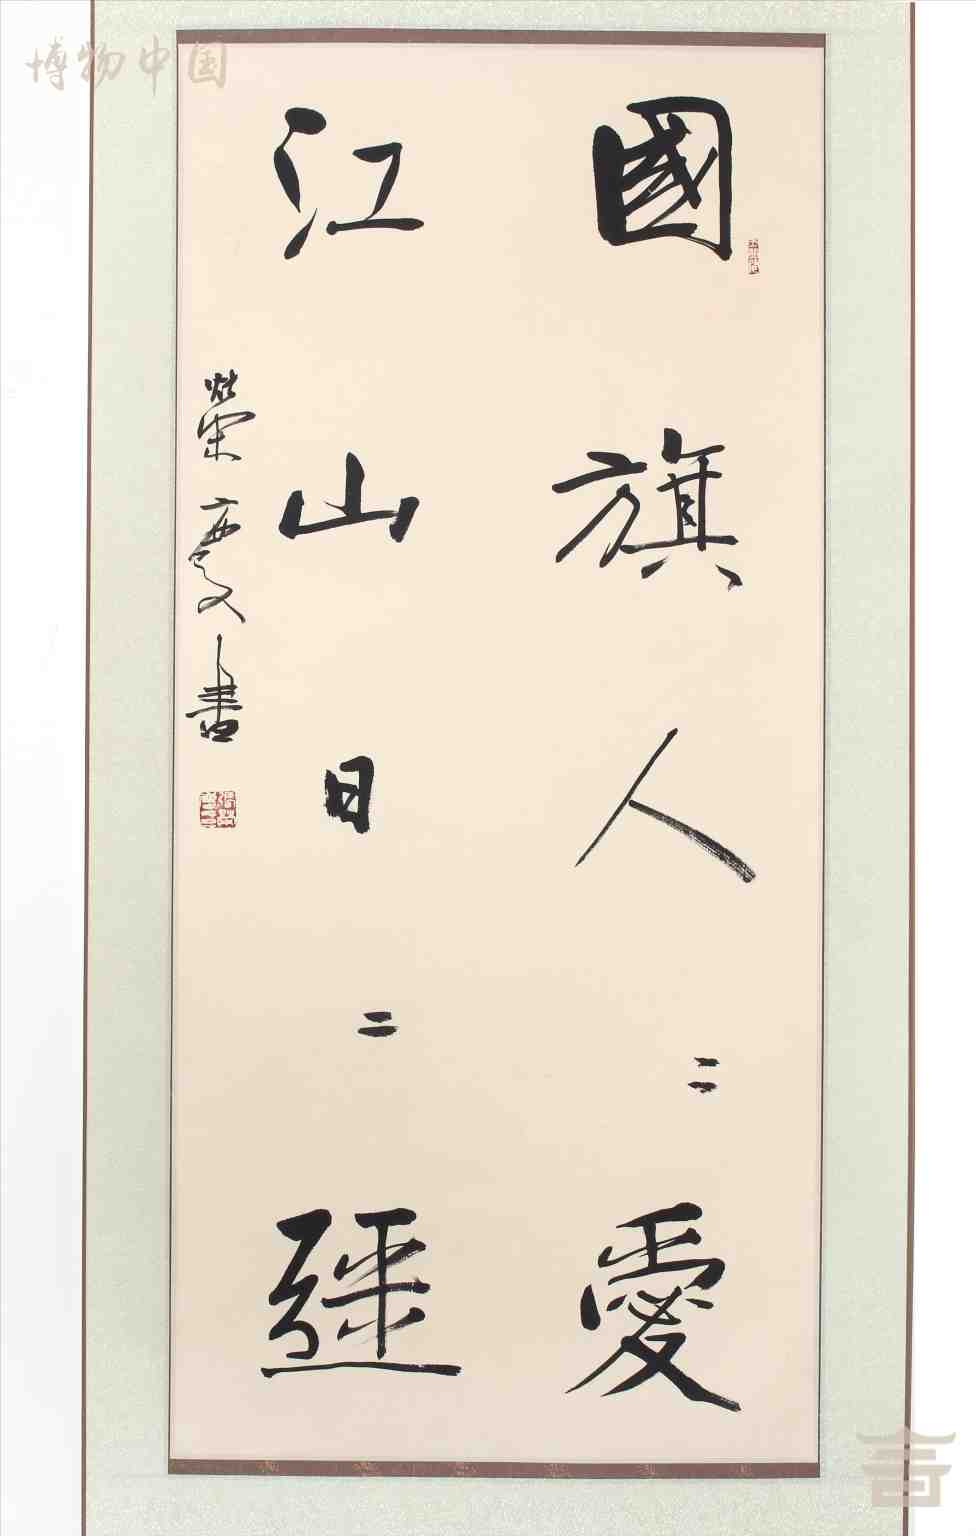 博物中国
國旗人〻愛
江山日〻
榮慶書